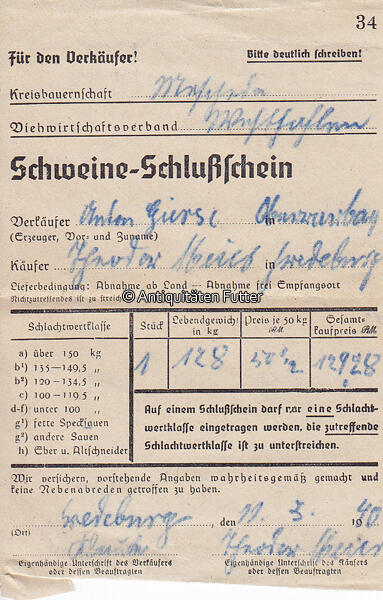 34
Für den Verkäufer! Bitte deutlich schreiben!
Kreisbauernschaft Meschede
Viehwirtschaftsverband Westfalen
Schweine-Schlußschein
Verkäufer Anton Giersc in
(Erzeuger, Vor- und Zuname)
Käufer Theodor in Fredeburg
Lieferbedingung: Abnahme ab Land — Abnahme frei Empfangsort
Nichtzutreffendes ist zu streichen
© Antiquitäten Futter
Schlachtwertklasse Stück Lebendgewicht in kg Preis je 50 kg RM. Gesamtkaufpreis RM.
a) über 150 kg
b¹) 135—149,5 „
b²) 120—134,5 „
c) 100—119,5 „
d-f) unter 100 „
g¹) fette Specksauen
g²) andere Sauen
h) Eber u. Altschneider
1 128 50½ 129,28
Auf einem Schlußschein darf nur eine Schlacht-
wertklasse eingetragen werden, die zutreffende
Schlachtwertklasse ist zu unterstreichen.
Wir versichern, vorstehende Angaben wahrheitsgemäß gemacht und
keine Nebenabreden getroffen zu haben.
Fredeburg, den 11. 3. 1940
(Ort)
Theodor
Eigenhändige Unterschrift des Verkäufers Eigenhändige Unterschrift des Käufers
oder dessen Beauftragten oder dessen Beauftragten